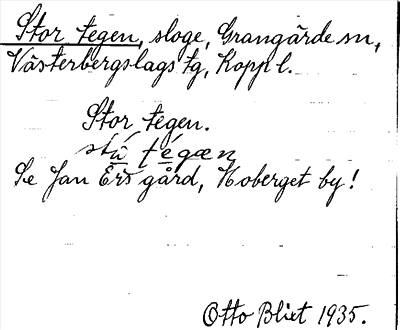 Stor tegen, sloge, Grangärde sn,
Västerbergslags tg, Kopp l.
Stor tegen.
stū tégæn
Se Jan Ers gård, Hoberget by!
Otto Blixt 1935.